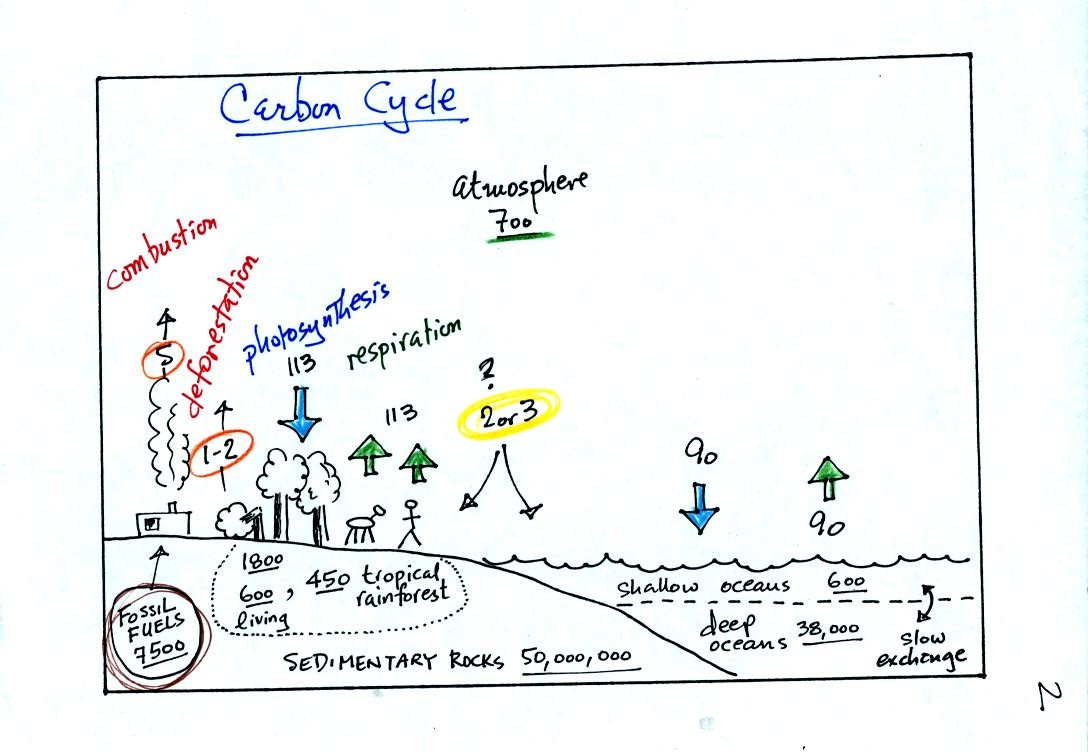 Carbon Cycle
atmosphere
700
combustion
deforestation
photosynthesis
respiration
5
1-2
113
113
?
2 or 3
90
90
FOSSIL
FUELS
7500
1800
600, 450 tropical
rainforest
living
SEDIMENTARY ROCKS 50,000,000
shallow oceans 600
deep
oceans 38,000
slow
exchange
2